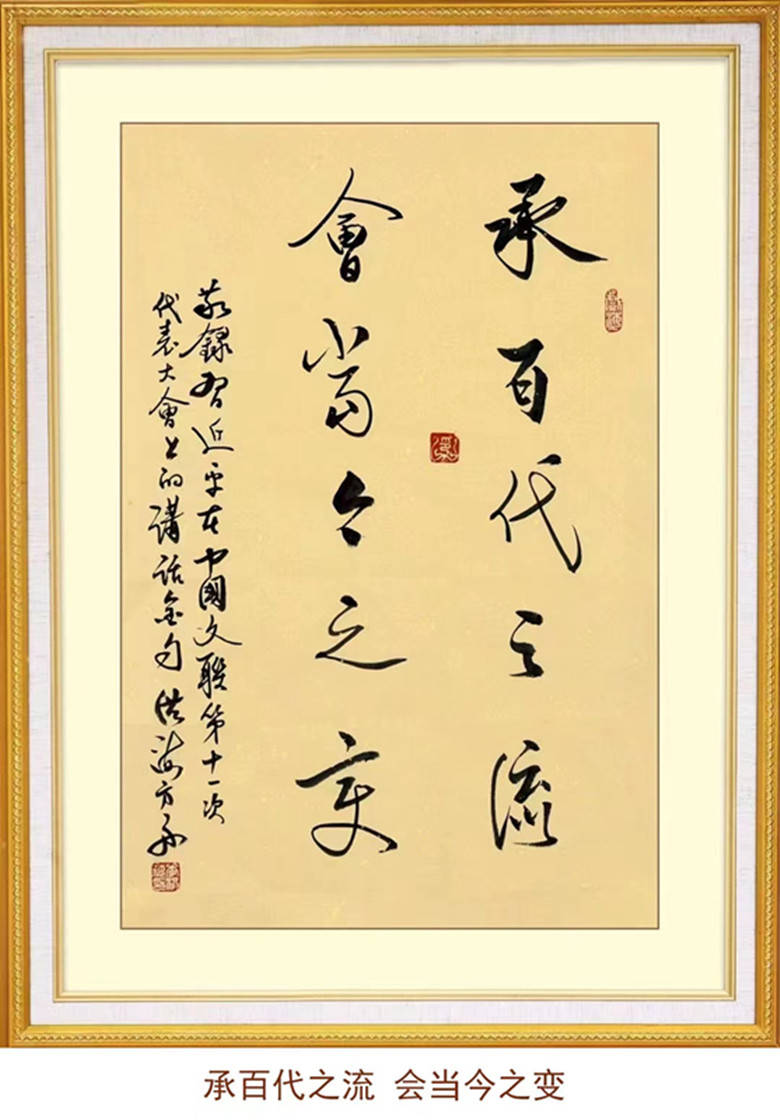 承百代之流
會當今之变
敬録習近平在中國文联第十一次
代表大會上的講話金句 洪海方
承百代之流 会当今之变